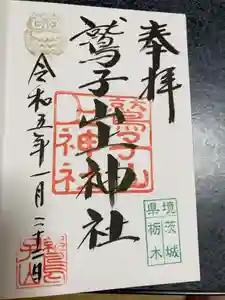 奉拝
鷲子山上神社
令和五年一月二十一日
鷲子山
上神社
境 茨城
県 栃木